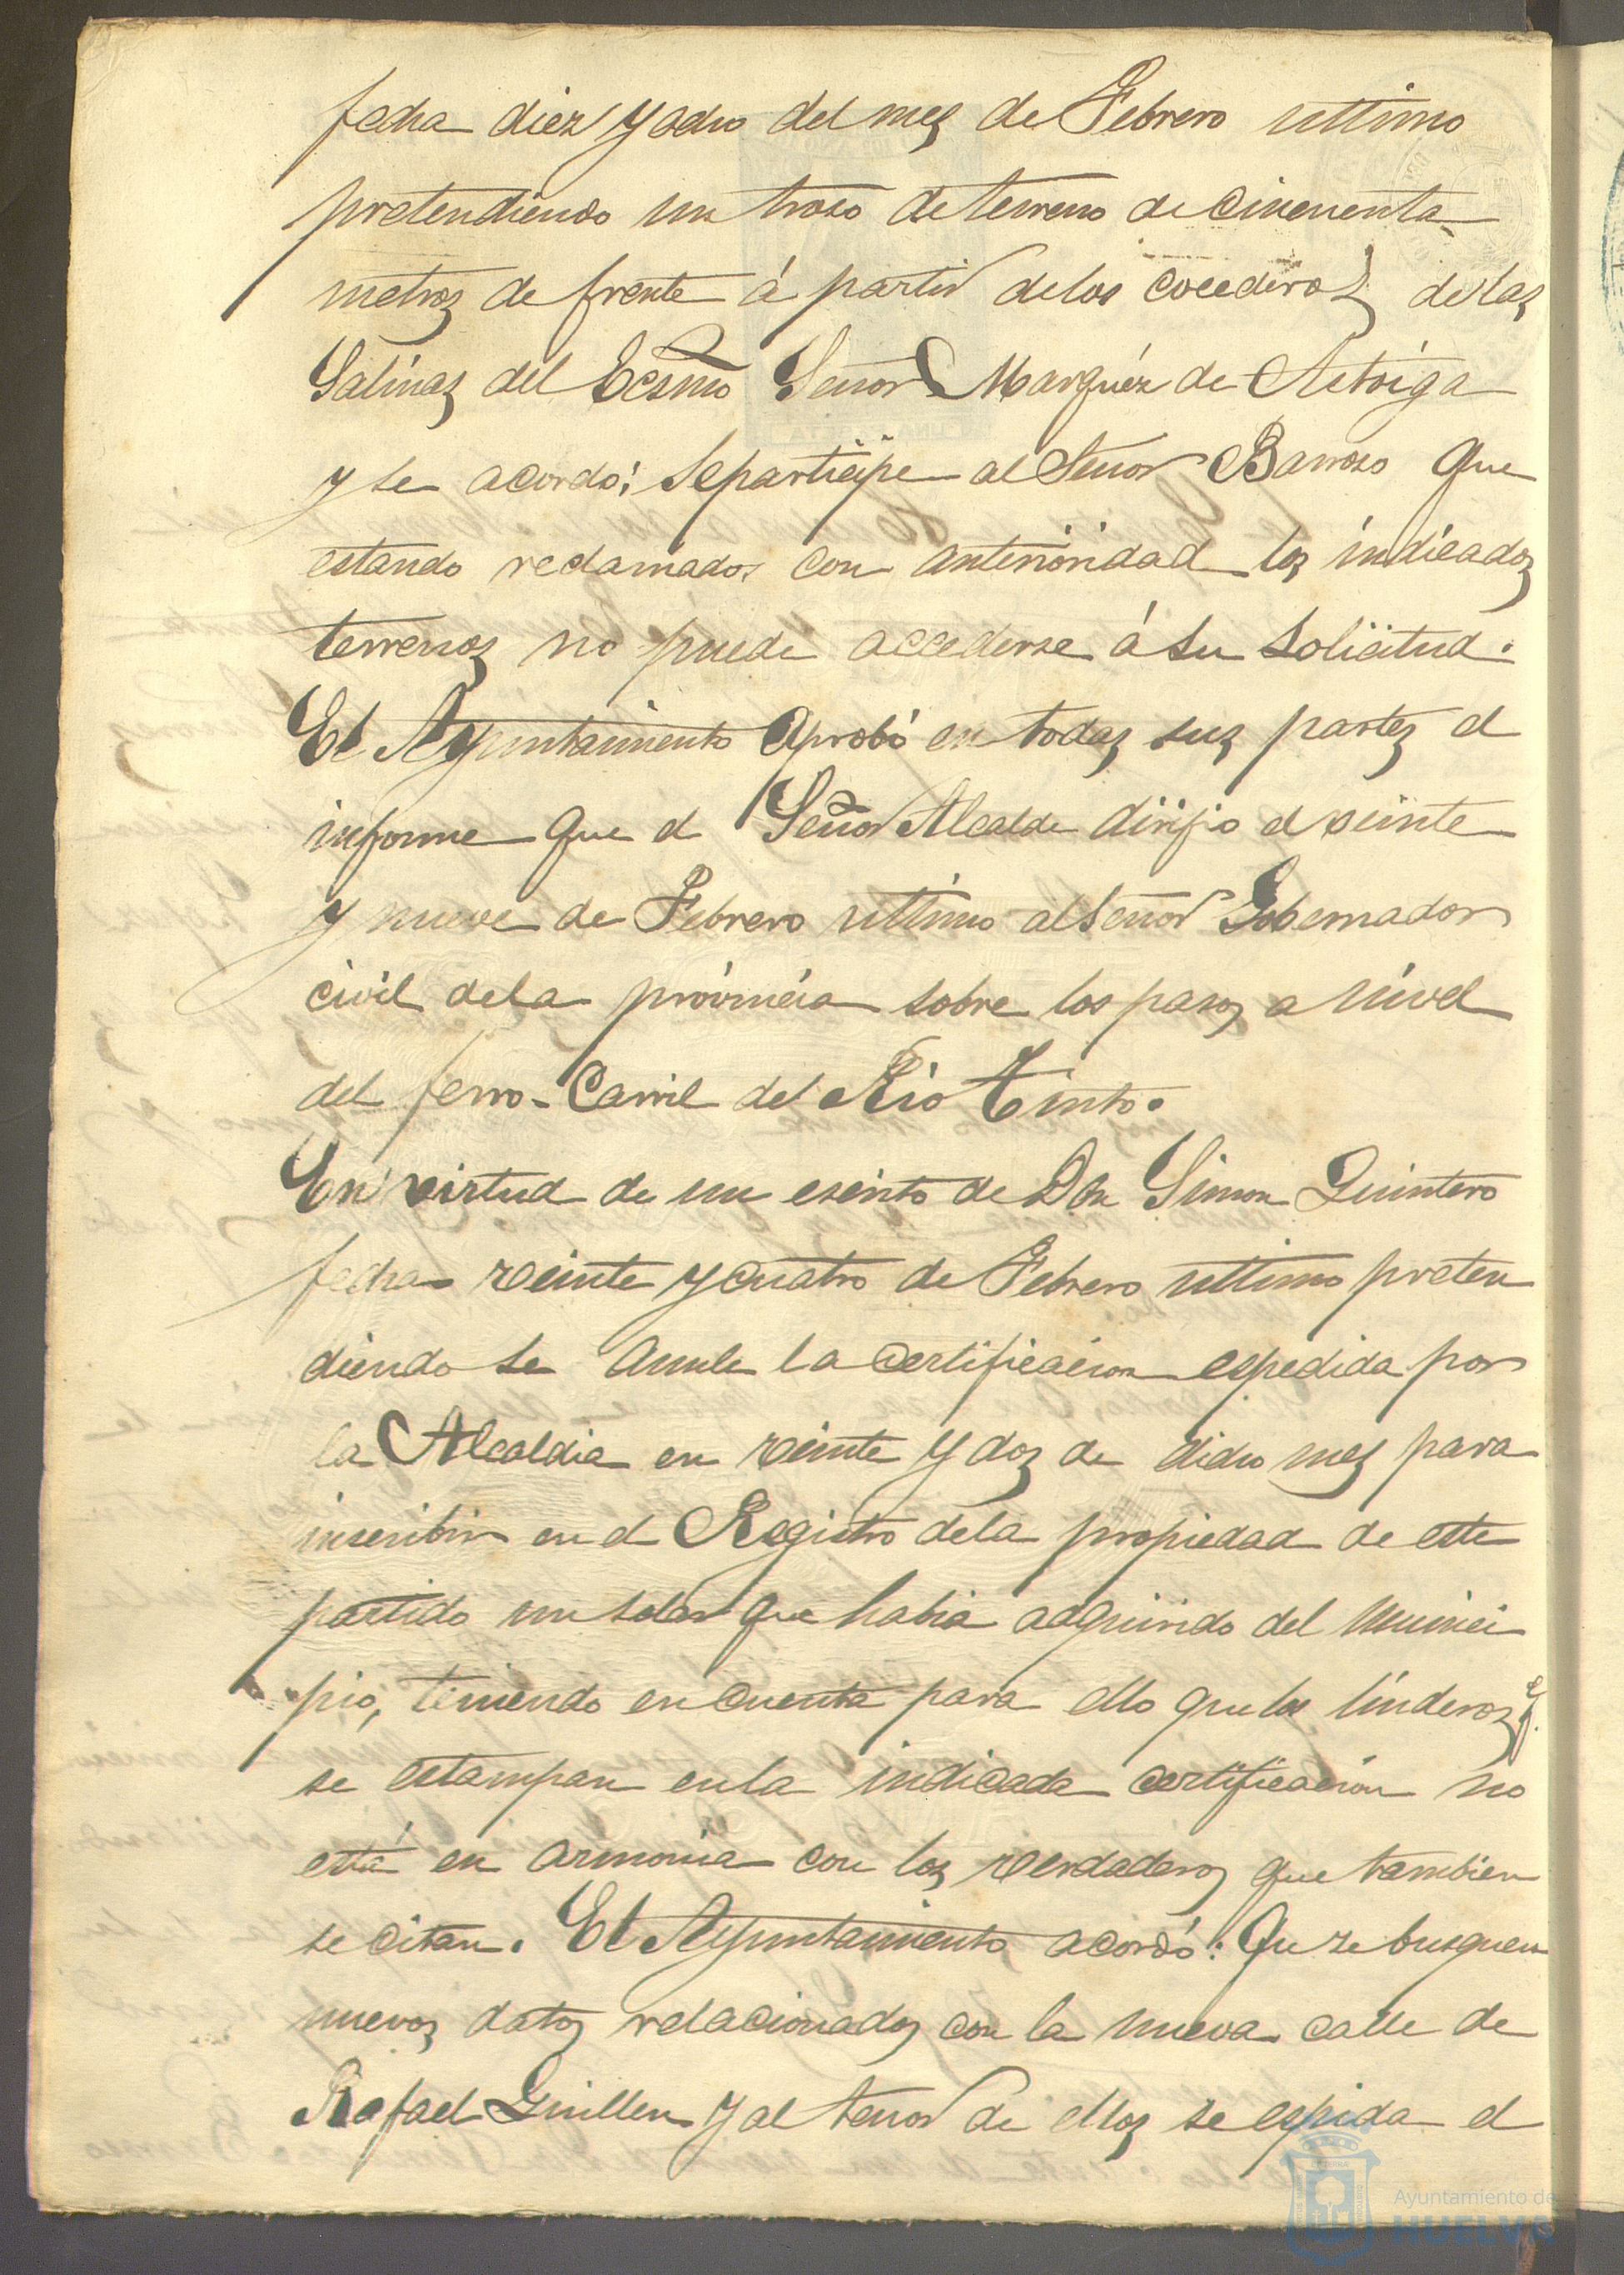 fecha diez y ocho del mes de Febrero ultimo
pretendiendo un trozo de terreno de cincuenta
metros de frente á partir de los cocederos de las
Salinas del Ecsmo Señor Marqués de Astorga
y se acordó: Se participe al Señor Barroso que
estando reclamados con anterioridad los indicados
terrenos no puede accederse á su solicitud.
El Ayuntamiento aprobó en todas sus partes el
informe que el Señor Alcalde dirijio el veinte
y nueve de Febrero ultimo al Señor Gobernador
civil de la provincia sobre los pasos a nivel
del ferro-Carril del Rio Tinto.
En virtud de un escrito de Don Simon Quintero
fecha veinte y cuatro de Febrero ultimo preten
diendo se anule la certificacion espedida por
la Alcaldia en veinte y dos de dicho mes para
inscribir en el Registro de la propiedad de este
partido un solar que habia adquirido del Munici
pio, teniendo en cuenta para ello que los linderos q.
se estampan en la indicada certificacion no
está en armonia con los verdaderos que tambien
se citan. El Ayuntamiento acordó: Que se busquen
nuevos datos relacionados con la nueva calle de
Rafael Guillen y al tenor de ellos se espida el
Ayuntamiento de
HUELVA